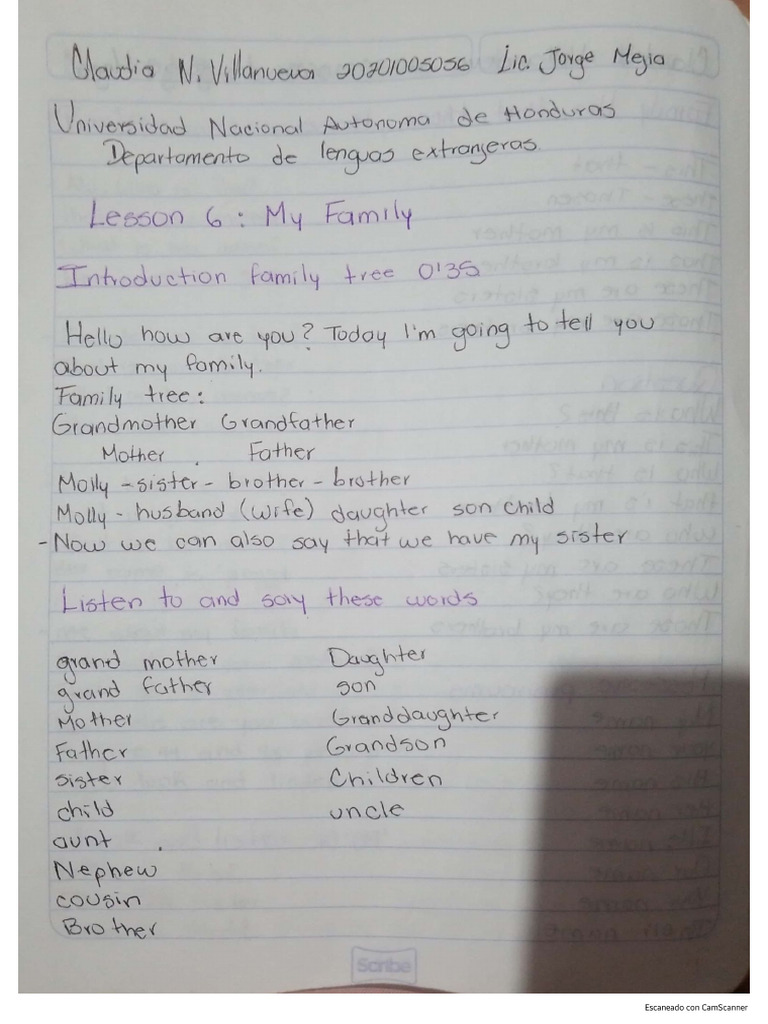 Claudia N. Villanueva 20201005056 Lic. Jorge Mejia
Universidad Nacional Autonoma de Honduras
Departamento de lenguas extranjeras
Lesson 6: My Family
Introduction family tree 0'35
Hello how are you? Today I'm going to tell you
about my family.
Family tree:
Grandmother Grandfather
Mother . Father
Molly - sister - brother - brother
Molly - husband (wife) daughter son child
- Now we can also say that we have my sister
Listen to and say these words
grand mother Daughter
grand father son
Mother Granddaughter
Father Grandson
sister Children
child uncle
aunt
Nephew
cousin
Brother
Scribe
Escaneado con CamScanner